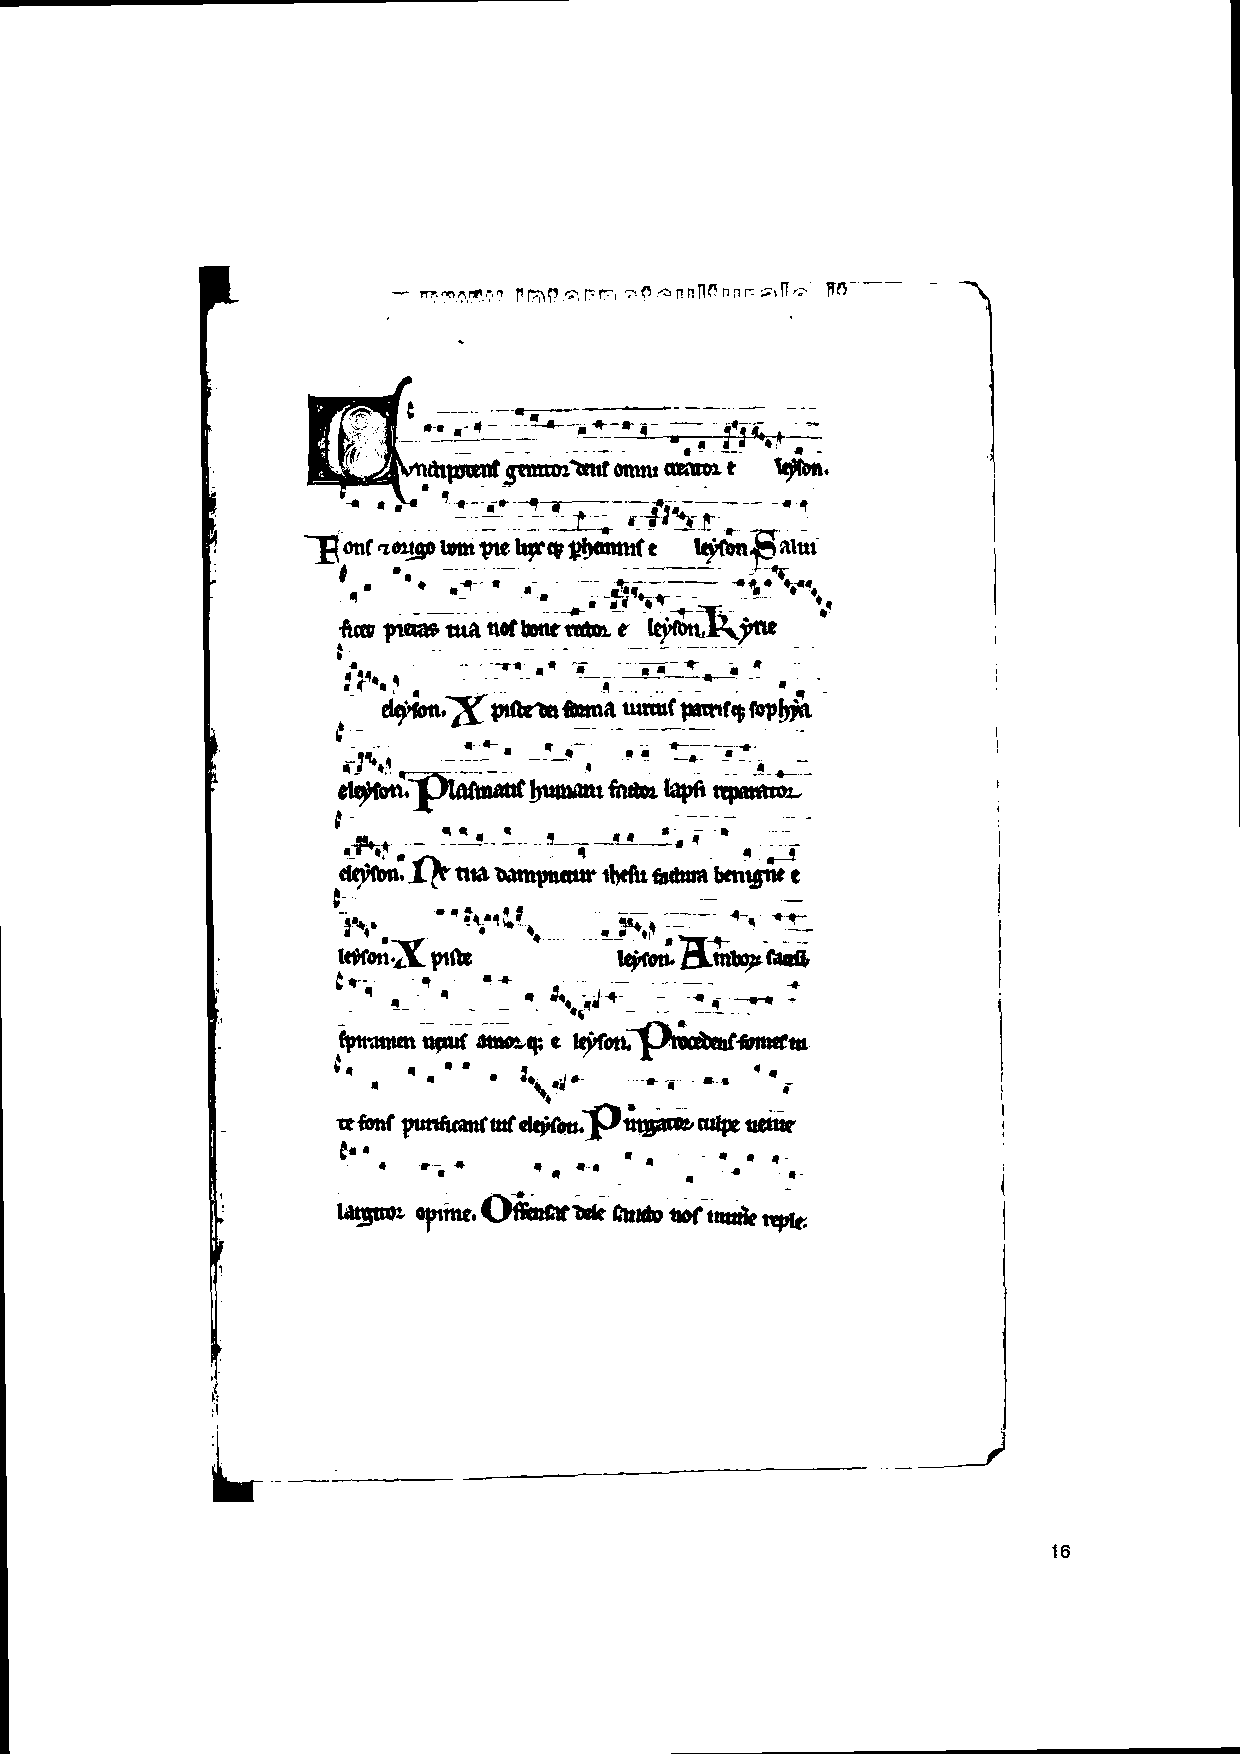 Cunctipotens genitor deus omni creator e leyson.
Fons ⁊ origo boni pie luxq; phennis e leyson. Salui
ficet pietas tua nos bone rector e leyson. Kyrie
eleyson. Xpiste dei forma uirtus patrisq; sophya
eleyson. Plasmatis humani factor lapsi reparator
eleyson. Ne tua dampnetur ihesu factura benigne e
leyson. Xpiste leyson. Amborꝝ sacrū
spiramen nexus amorq; e leyson. Procedens fomes ui
te fons purificans uis eleyson. Purgator culpe uenie
largitor opime. Offensas dele sancto nos munere reple.
16